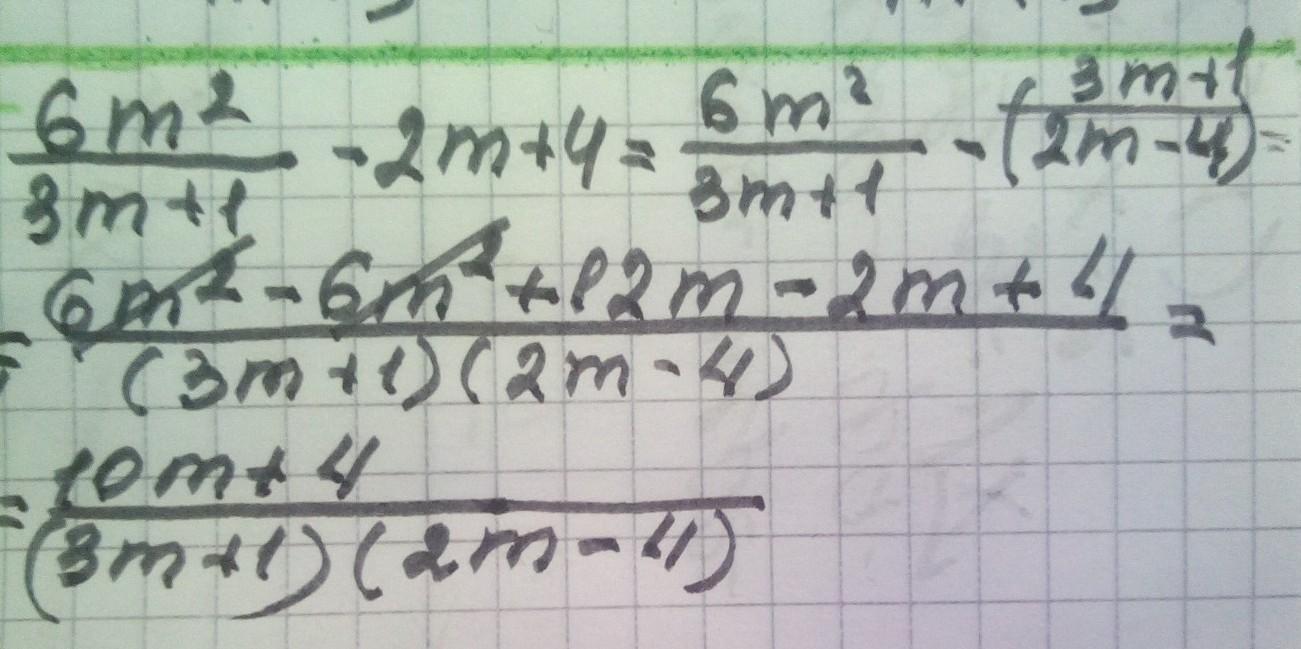 6m² / 3m+1 - 2m+4 = 6m² / 3m+1 - (3m+1 / 2m-4) =
= 6m² - 6m² + 12m - 2m + 4 / (3m+1)(2m-4) =
= 10m+4 / (3m+1)(2m-4)